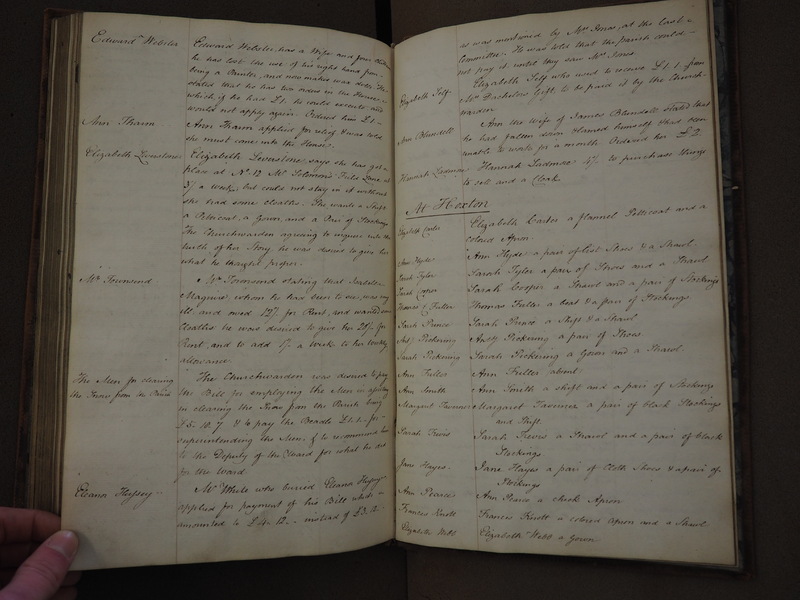 Edward Webster
Edward Webster, has a Wife and four Children
he has lost the use of his right hand from
being a Painter, and now makes wax dolls. He
stated that he has two orders in the House
which, if he had £1. he could execute and
would not apply again. Ordered him £1.
Ann Tharm
Ann Tharm applied for relief & was told
she must come into the House.
Elizabeth Livenstone
Elizabeth Livenstone says she has got a
place at No. 12 Mr Solomons Lane at
3/ a week, but could not stay in it without
she had some cloaths. She wants a Shift
a Petticoat, a Gown, and a Pair of Stockings
The Churchwarden agreeing to inquire into the
truth of her Story, he was desired to give her
what he thought proper.
Mr Townsend
Mr Townsend stating that Isabella
Maguire, whom he has been to see, was very
ill, and owed 12/ for Rent, and wanted some
Cloaths he was desired to give her 21/ for
Rent, and to add 1/ a week to her weekly
allowance.
The Men for clearing
the Snow from the Parish
The Churchwarden was desired to pay
the Bill for employing the Men in assisting
in clearing the Snow from the Parish being
£5.10.7 & to pay the Beadle £1.1. for
superintending the Men, & to recommend him
to the Deputy of the Ward for what he did
for the Ward.
Eleanr Hussey
Mr While who buried Eleanr Hussey
applied for payment of his Bill which
amounted to £4.12. instead of £3.2.
as was mentioned by Mr Jones, at the last
Committee. He was told that the parish could
not pay it until they saw Mr Jones.
Elizabeth Self
Elizabeth Self who used to receive £1.1. from
Mr Bachelors Gift, to be paid it by the Church-
warden
Ann Blundell
Ann the wife of James Blundell stated that
he had fallen down & lamed himself & had been
unable to work for a month. Ordered her £2
Hannah Ludmore
Hannah Ludmore 4/ to purchase things
to sell and a Cloak.
At Hoxton
Elizabeth Carter
Elizabeth Carter a flannel Petticoat and a
colored Apron
Ann Hyde
Ann Hyde, a pair of list Shoes & a Shawl.
Sarah Tyler
Sarah Tyler a pair of Shoes and a Shawl
Sarah Cooper
Sarah Cooper a Shawl and a pair of Stockings
Thomas Fuller
Thomas Fuller a Coat & a pair of Stockings
Sarah Prince
Sarah Prince a Shift & a Shawl
Anty Pickering
Anty Pickering a pair of Shoes
Sarah Pickering
Sarah Pickering a Gown and a Shawl.
Ann Fuller
Ann Fuller absent.
Ann Smith
Ann Smith a shift and a pair of Stockings
Margaret Tavenner
Margaret Tavenner a pair of black Stockings
and Shift
Sarah Treves
Sarah Treves a Shawl and a pair of black
Stockings
Jane Hayes.
Jane Hayes a pair of Cloth Shoes & a pair of
Stockings
Ann Pearce
Ann Pearce a check Apron
Frances Knott
Francis Knott a colored apron and a Shawl
Elizabeth Webb
Elizabeth Webb a Gown.